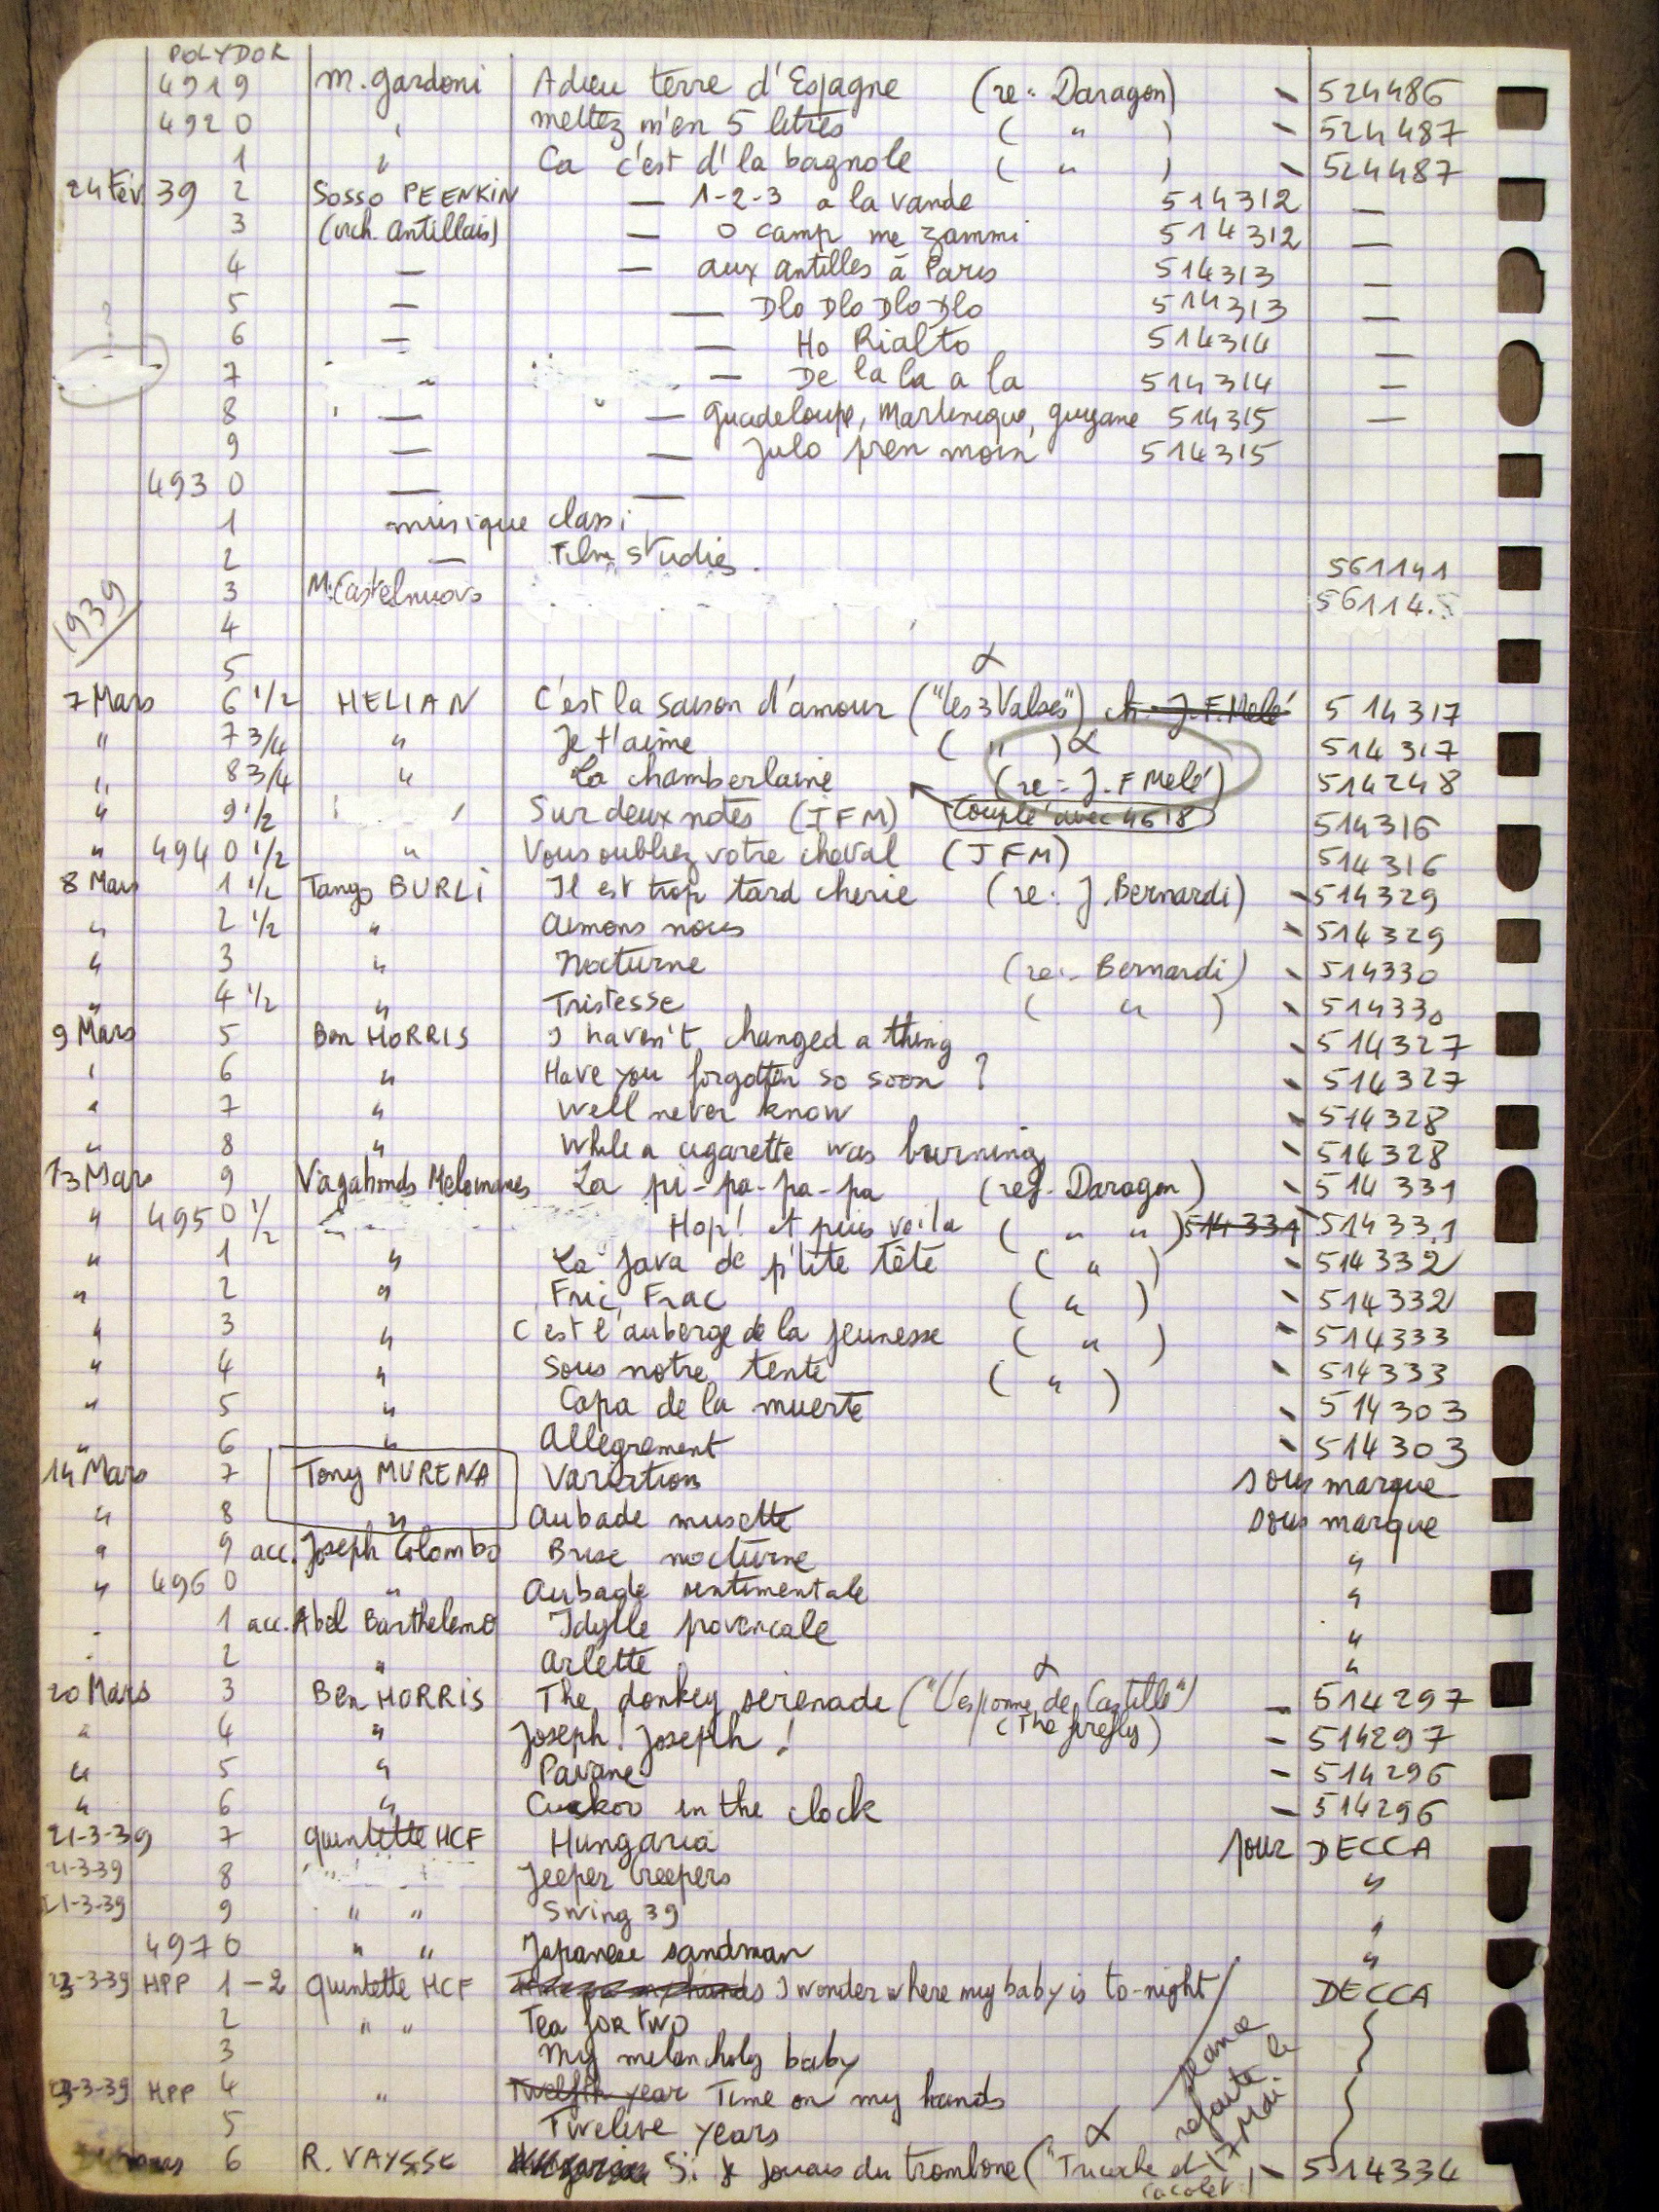 POLYDOR
4919 M. Gardoni Adieu terre d'Espagne (re: Daragon) \ 524486
4920 " mettez m'en 5 litres ( " ) \ 524487
1 " Ca c'est d'la bagnole ( " ) \ 524487
24 Fév. 39 2 Sosso PEENKIN — 1-2-3 a la vande 514312 —
3 (orch. antillais) — O camp me zammi 514312 —
4 — — aux antilles à Paris 514313 —
? 5 — — Dlo Dlo Dlo Dlo 514313 —
6 — — Ho Rialto 514314 —
7 - — De la la a la 514314 —
8 — — guadeloupe, Martinique, guyane 514315 —
9 — — Julo pren moin 514315
4930 — —
1 musique classi
2 — Film studies. 561141
1939 3 M. Castelnuovo 56114.
4
5
7 Mars 6 1/2 HELIAN C'est la saison d'amour ("les 3 Valses") ch. J.F. Melé 514317
" 7 3/4 " Je t'aime ( " ) α 514317
" 8 3/4 " La chamberlaine (re: J.F Melé) 514248
" 9 1/2 Sur deux notes (JFM) Couplé avec 4618 514316
" 4940 1/2 " Vous oubliez votre cheval (JFM) 514316
8 Mars 1 1/2 Tango BURLI Il est trop tard cherie (re: J. Bernardi) \ 514329
" 2 1/2 " Aimons nous \ 514329
" 3 " Nocturne (re: Bernardi) \ 514330
" 4 1/2 " Tristesse ( " ) \ 514330
9 Mars 5 Ben HORRIS I haven't changed a thing \ 514327
" 6 " Have you forgotten so soon ? \ 514327
" 7 " Well never know \ 514328
" 8 " While a cigarette was burning \ 514328
13 Mars 9 Vagabonds Melomanes La pi-pa-pa-pa (ref. Daragon) \ 514331
" 4950 1/2 Hop! et puis voila ( " " ) 514331 514331
" 1 " La Java de p'tite tête ( " ) \ 514332
" 2 " Fric, Frac ( " ) \ 514332
" 3 " C est l'auberge de la jeunesse ( " ) \ 514333
" 4 " Sous notre tente ( " ) \ 514333
" 5 " Capa de la muerte \ 514303
" 6 " Allegrement \ 514303
14 Mars 7 Tony MURENA Variation sous marque
" 8 " Aubade musette sous marque
" 9 acc. Joseph Colombo Brise nocturne "
" 4960 " Aubade sentimentale "
" 1 acc. Abel Barthelemo Idylle provencale "
" 2 " Arlette "
20 Mars 3 Ben HORRIS The donkey serenade ( – 514297
" 4 " Joseph! Joseph! (The firefly) – 514297
" 5 " Pavane – 514296
" 6 " Cuckoo in the clock – 514296
21-3-39 7 Quintette HCF Hungaria pour DECCA
21-3-39 8 " Jeeper Creepers "
21-3-39 9 " " Swing 39 "
4970 " " Japanese sandman "
23-3-39 HPP 1-2 Quintette HCF I wonder where my baby is to-night / DECCA
2 " " Tea FOR TWO
3 My melancholy baby
23-3-39 HPP 4 " Twelfth year Time on my hands
5 Twelve years
séance refaite le 17 Mai.
6 R. VAYSSE Si je jouais du trombone ( \ 514334